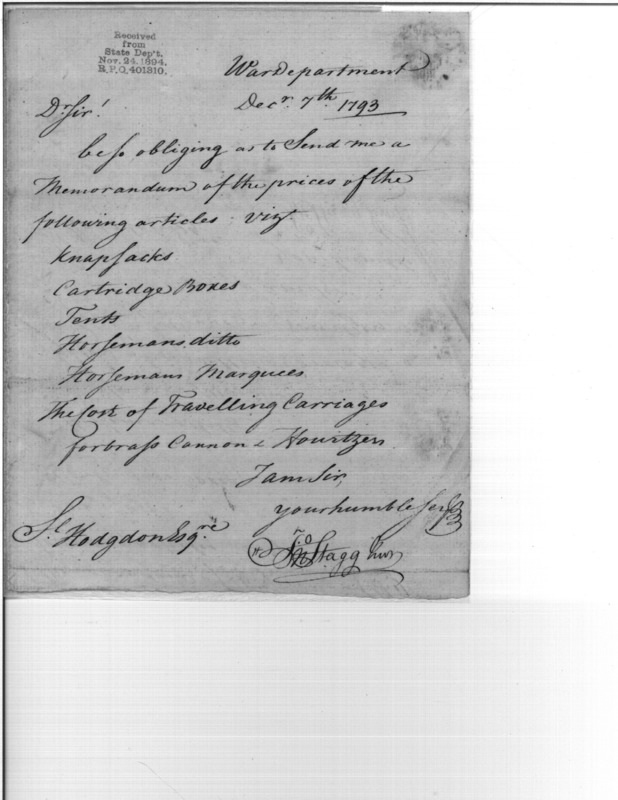 Received
from
State Dep't.
Nov. 24. 1894.
R.P.O. 401310.
War Department
Decr. 7th. 1793
Dr Sir!
be so obliging as to Send me a
Memorandum of the prices of the
following articles. Vizt.
Knapsacks
Cartridge Boxes
Tents
Horsemans ditto
Horsemans Marquees
The Cost of Travelling Carriages
for brass Cannon & Howitzers
I am Sir,
your humble Servt
Sl Hodgdon Esqre
Jno Stagg Junr